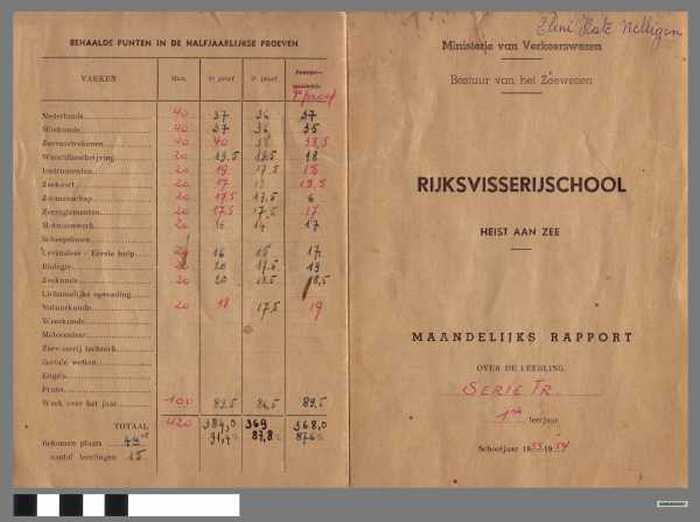 BEHAALDE PUNTEN IN DE HALFJAARLIJKSE PROEVEN
VAKKEN Max. 1e proef 2e proef
Nederlands 40 37 36 37
Wiskunde 40 37 36 35
Zeevaartrekenen 40 40 38
Wereldbeschrijving 20 19,5 18
Instrumenten 20 19 17,5
Zeekaart 20 17
Zeemanschap 20 17,5
Zeereglementen 20 17,5 17,5 17
Mattenwerk 20 16 14 17
Scheepsbouw
Levensleer - Eerste hulp 16 15 17
Biologie 20 17,5 19
Zeekunde 20 20 18,5
Lichamelijke opvoeding
Natuurkunde 20 18 17,5 19
Weerkunde
Motorenleer
Zeevisserij techniek
Sociale wetten
Engels
Frans
Werk over het jaar 100 89,5
TOTAAL 420 384,0 369 368,0
bekomen plaats
aantal leerlingen 15
Ministerie van Verkeerswezen
Bestuur van het Zeewezen
RIJKSVISSERIJSCHOOL
HEIST AAN ZEE
MAANDELIJKS RAPPORT
OVER DE LEERLING
SERIE FR.
1ste leerjaar
Schooljaar 1953-1954